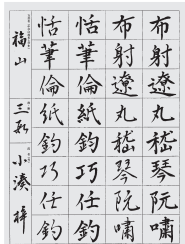 布射遼丸嵇琴阮嘯
布射遼丸嵇琴阮嘯
恬筆倫紙鈞巧任釣
恬筆倫紙鈞巧任釣
福山
三段
小湊 梓